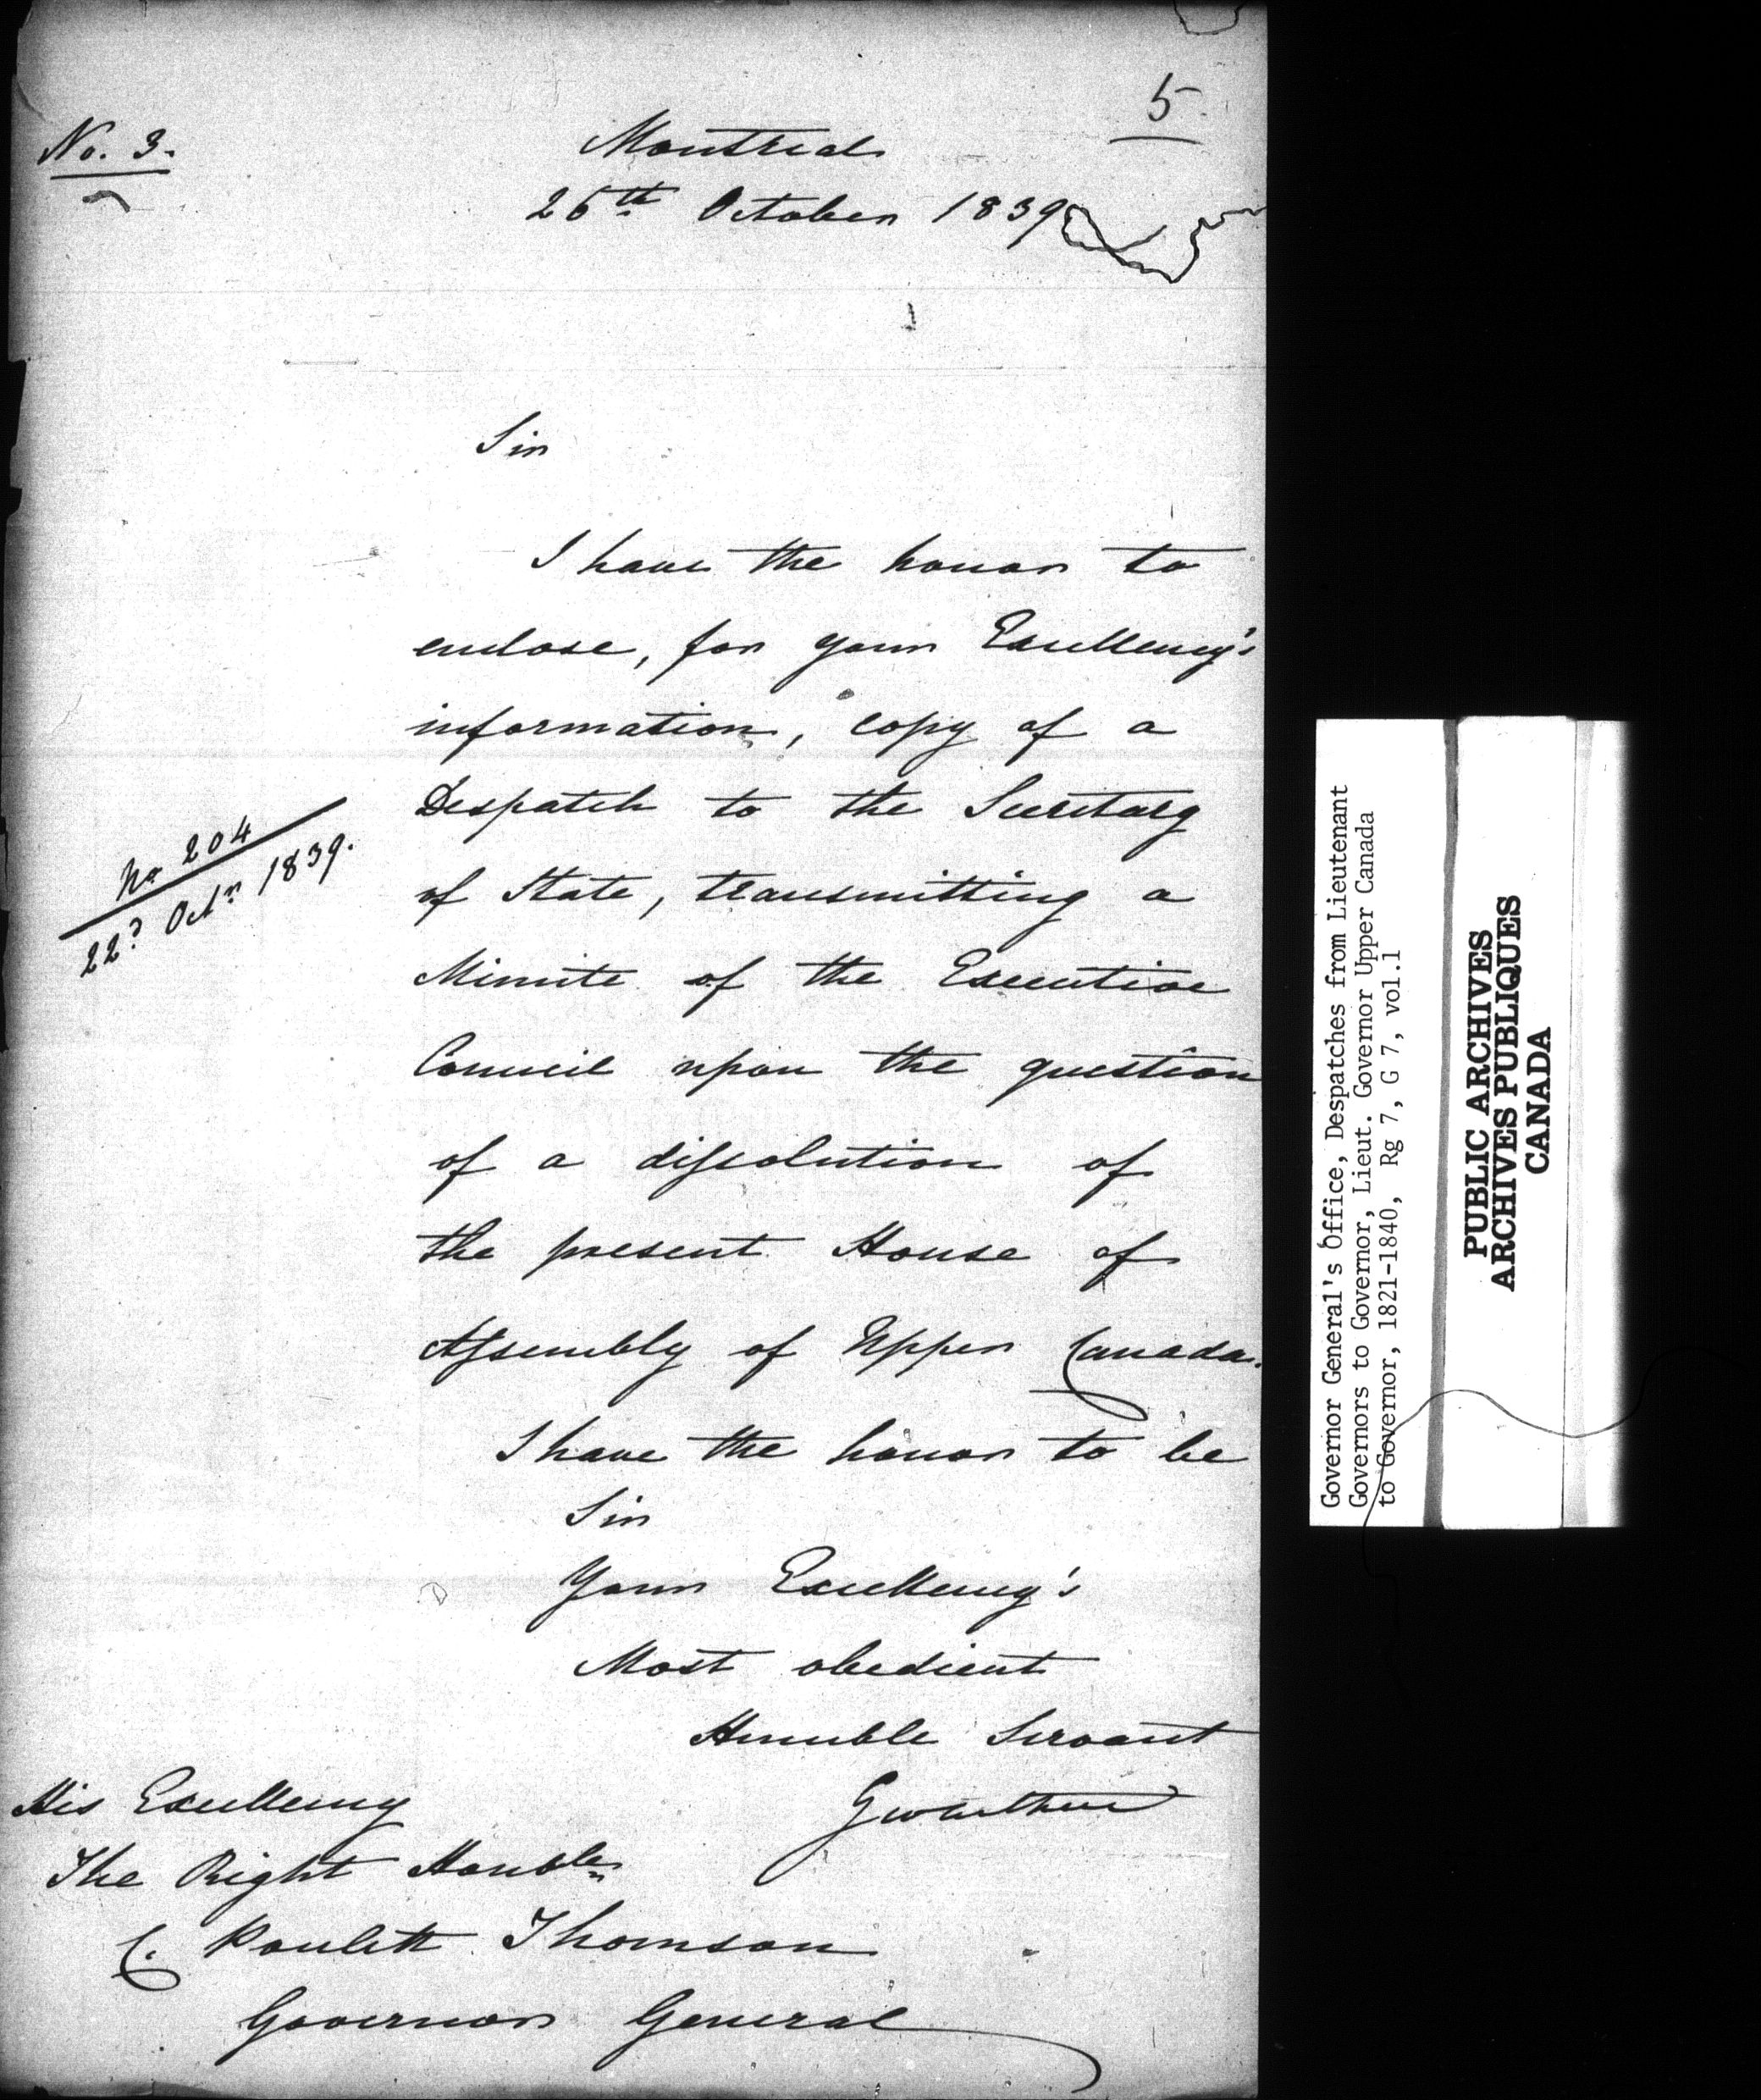 5
No. 3.
Montreal
26th October 1839
Sir
I have the honor to
enclose, for your Excellency's
information, copy of a
Despatch to the Secretary
of State, transmitting a
Minute of the Executive
Council upon the question
of a dissolution of
the present House of
Assembly of Upper Canada.
No 204
22d Octr 1839.
I have the honor to be
Sir
Your Excellency's
Most obedient
Humble Servant
Geo Arthur
His Excellency
The Right Honble
C. Poulett Thomson
Governor General
Governor General's Office, Despatches from Lieutenant
Governors to Governor, Lieut. Governor Upper Canada
to Governor, 1821-1840, Rg 7, G 7, vol.1
PUBLIC ARCHIVES
ARCHIVES PUBLIQUES
CANADA